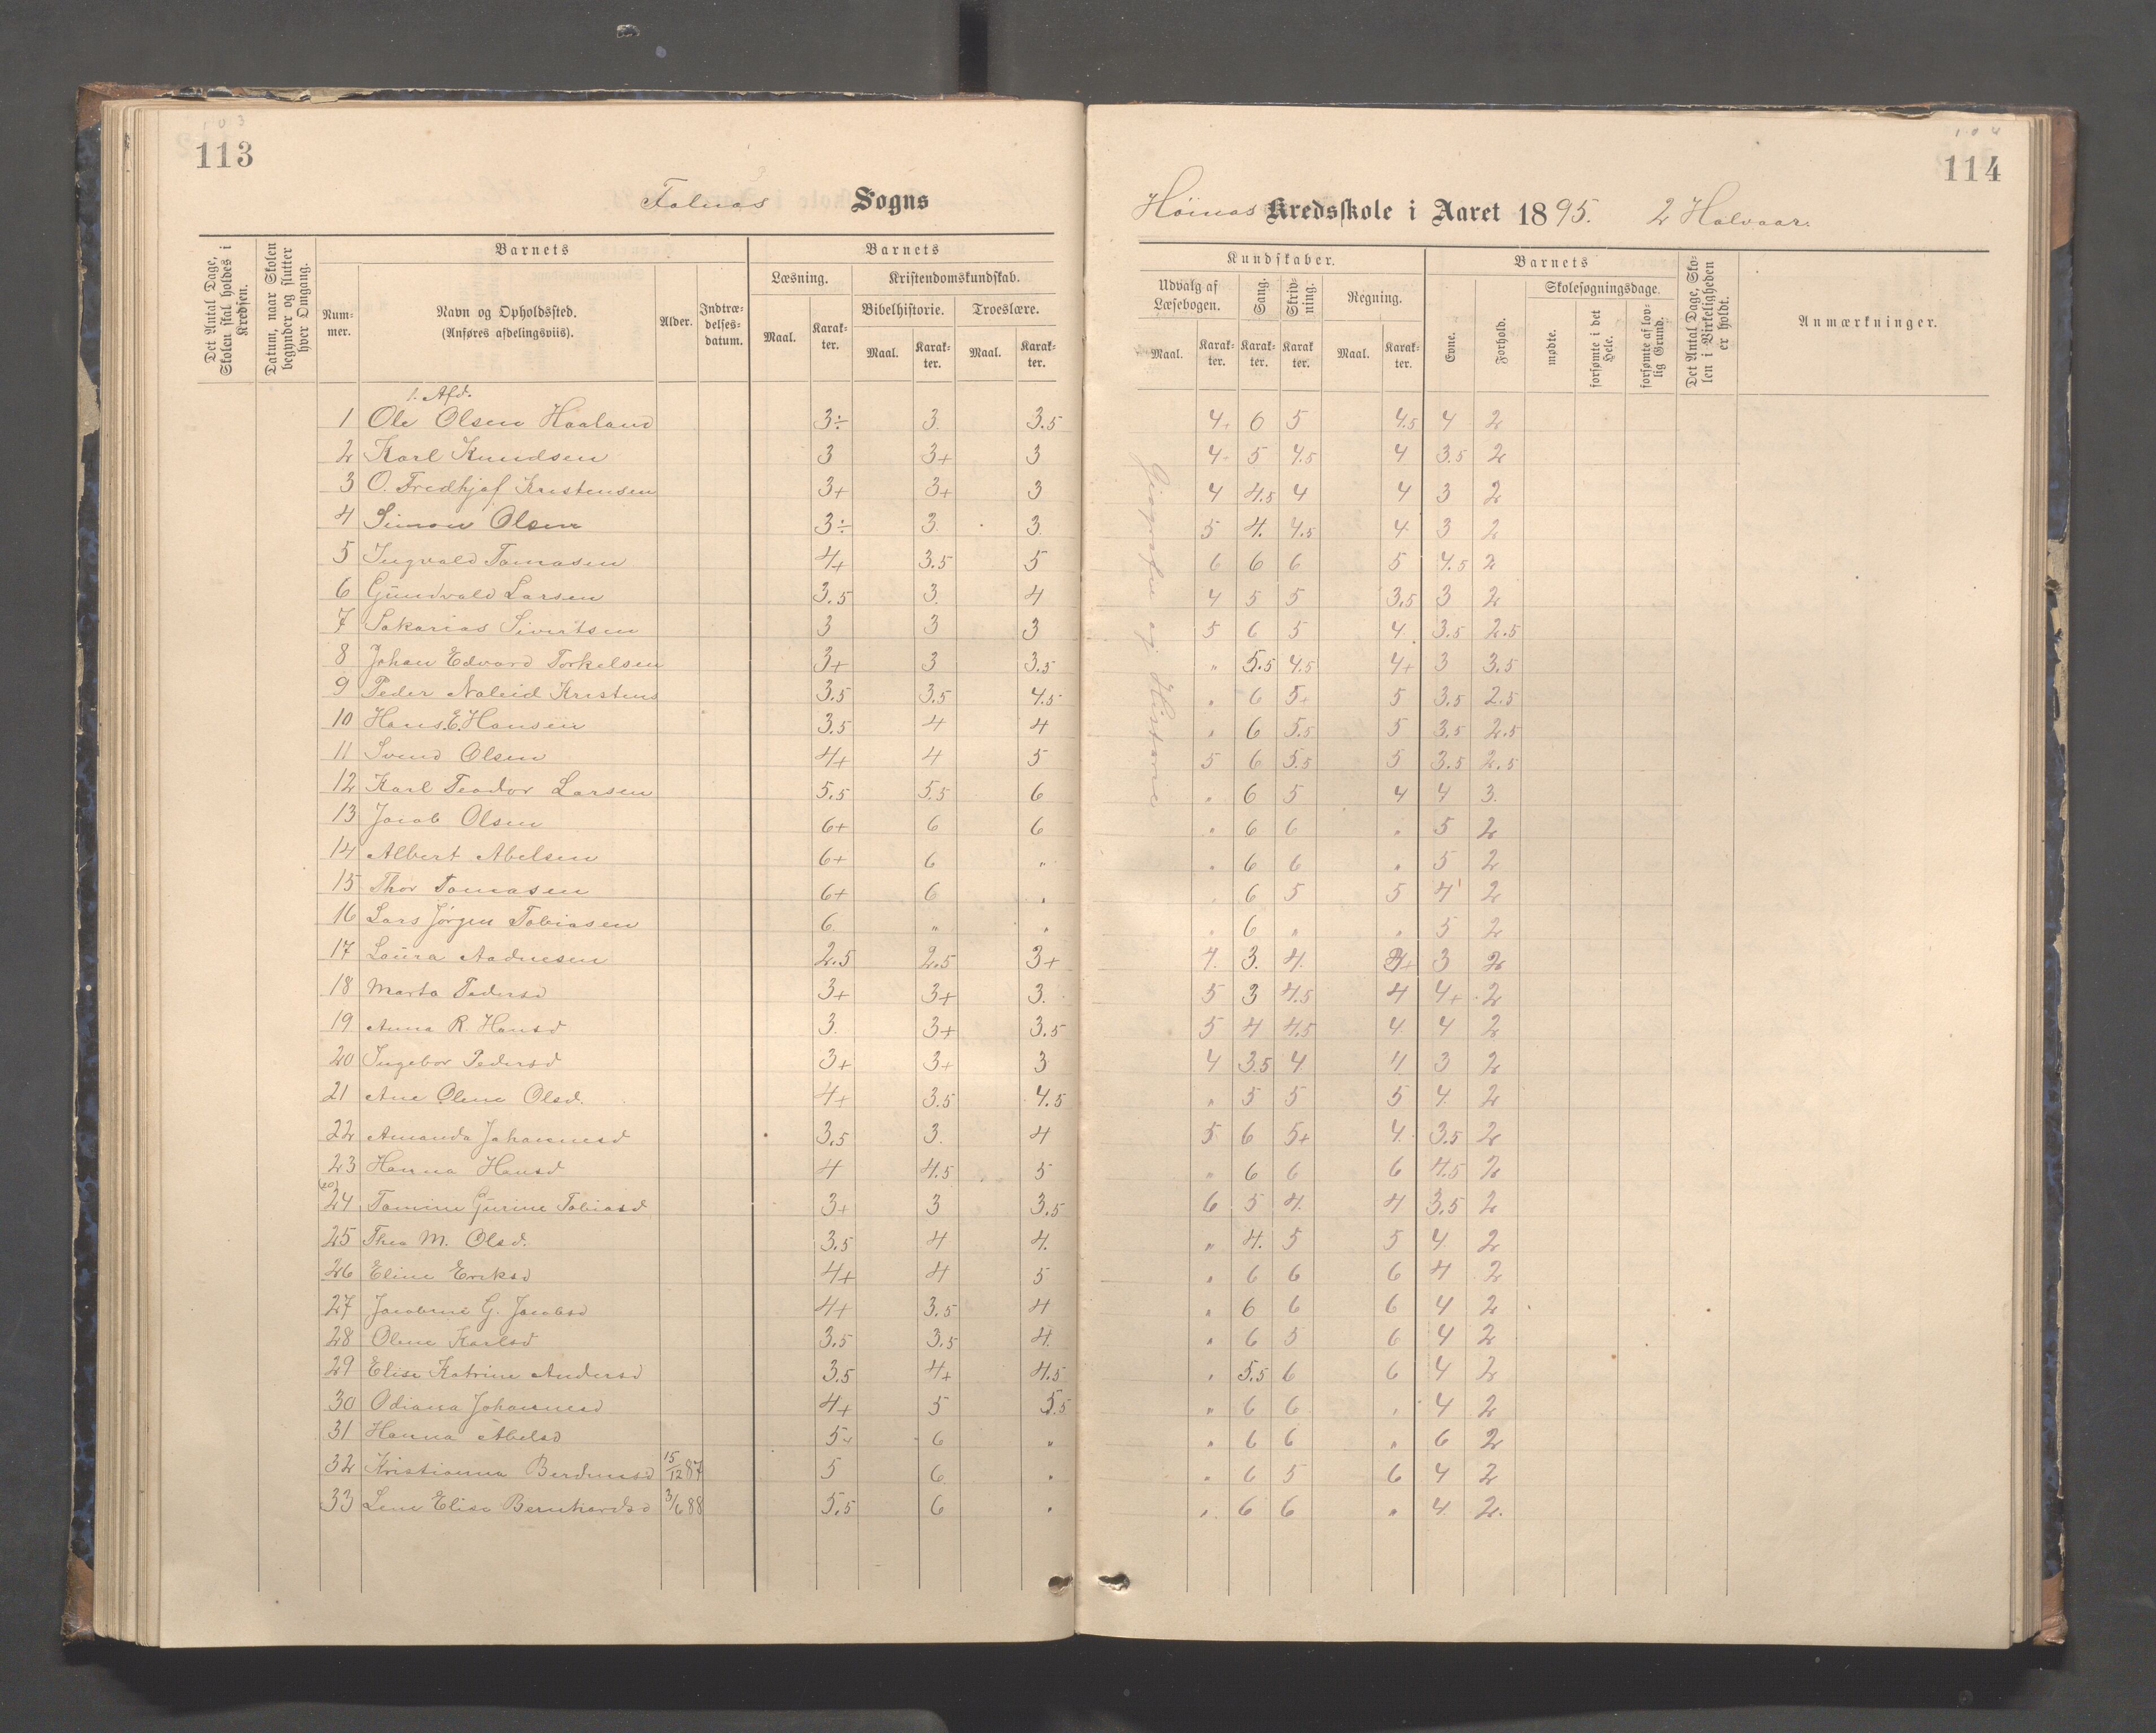 103
113
Falnas Sogns
Det Antal Dage, Skolen skal holdes i Kredsen.
Datum, naar Skolen begynder og slutter hver Omgang.
Barnets
Nummer.
Navn og Opholdssted.
(Anføres afdelingsviis).
Alder.
Indtrædelsesdatum.
Barnets
Læsning.
Kristendomskundskab.
Bibelhistorie.
Troeslære.
Maal.
Karakter.
Maal.
Karakter.
Maal.
Karakter.
1. Afd.
1 Ole Olsen Haaland 3÷ 3. 3.5
2 Karl Knudsen 3 3+ 3
3 O. Fredhjof Kristensen 3+ 3+ 3
4 Simon Olsen 3÷ 3. 3.
5 Ingvald Tomasen 4+ 3.5 5
6 Gundvald Larsen 3.5 3. 4
7 Sakarias Sivertsen 3 3 3
8 Johan Edvard Torkelsen 3+ 3 3.5
9 Peder Naleid Kristens 3.5 3.5 4.5
10 Hans. E. Hansen 3.5 4 4
11 Svend Olsen 4+ 4 5
12 Karl Teodor Larsen 5.5 5.5 6
13 Jacob Olsen 6+ 6 6
14 Albert Abelsen 6+ 6 "
15 Thor Tomasen 6+ 6 "
16 Lars Jørgen Tobiasen 6 " "
17 Laura Aadnesen 2.5 2.5 3+
18 Marta Pedersd 3+ 3+ 3.
19 Anna R. Hansd 3. 3+ 3.5
20 Ingebor Pedersd 3+ 3+ 3
21 Ane Olene Olsd. 4+ 3.5 4.5
22 Amanda Johannesd 3.5 3. 4
23 Hanna Hansd 4 4.5 5
24 Tomine Gurine Tobiasd 3+ 3 3.5
25 Thea M. Olsd. 3.5 4 4.
26 Eline Eriksd 4+ 4 5
27 Jacobine G. Jacobsd 4+ 3.5 4
28 Olene Karlsd 3.5 3.5 4.
29 Elise Katrine Andersd 3.5 4+ 4.5
30 Odiana Johannesd 4+ 5 5.5
31 Hanna Abelsd 5+ 6 "
32 Kristianna Berdinesd 15/12 87 5 6 "
33 Lene Elise Bernhardsd 3/6 88 5.5 6 "
104
114
Höinas Kredsskole i Aaret 1895. 2 Halvaar.
Kundskaber.
Udvalg af Læsebogen.
Sang.
Skrivning.
Regning.
Maal.
Karakter.
Karakter.
Karakter.
Maal.
Karakter.
Barnets
Evne.
Forhold.
Skolesøgningsdage.
mødte.
forsømte i det Hele.
forsømte af lovlig Grund.
Det Antal Dage, Skolen i Virkeligheden er holdt.
Anmærkninger.
Geografie og Historie
4+ 6 5 4.5 4 2
4 5 4.5 4 3.5 2
4 4.5 4 4 3 2
5 4. 4.5 4 3 2
6 6 6 5 4.5 2
4 5 5 3.5 3 2
5 6 5 4. 3.5 2.5
" 5.5 4.5 4+ 3 3.5
" 6 5+ 5 3.5 2.5
" 6 5.5 5 3.5 2.5
5 6 5.5 5 3.5 2.5
" 6 5 4 4 3.
" 6 6 " 5 2
" 6 6 " 5 2
" 6 5 5 4 2
" 6 " " 5 2
4. 3. 4. 3+ 3 2
5 3 4.5 4 4+ 2
5 4 4.5 4 4 2
4 3.5 4 4 3 2
" 5 5 5 4 2
5 6 5+ 4. 3.5 2
" 6 6 6 4.5 2
6 5 4. 4 3.5 2
" 4. 5 5 4 2
" 6 6 6 4 2
" 6 6 6 4 2
" 6 5 6 4 2
" 5.5 6 6 4 2
" 6 6 " 4 2
" 6 6 " 6 2
" 6 5 6 4 2
" 6 6 " 4 2.